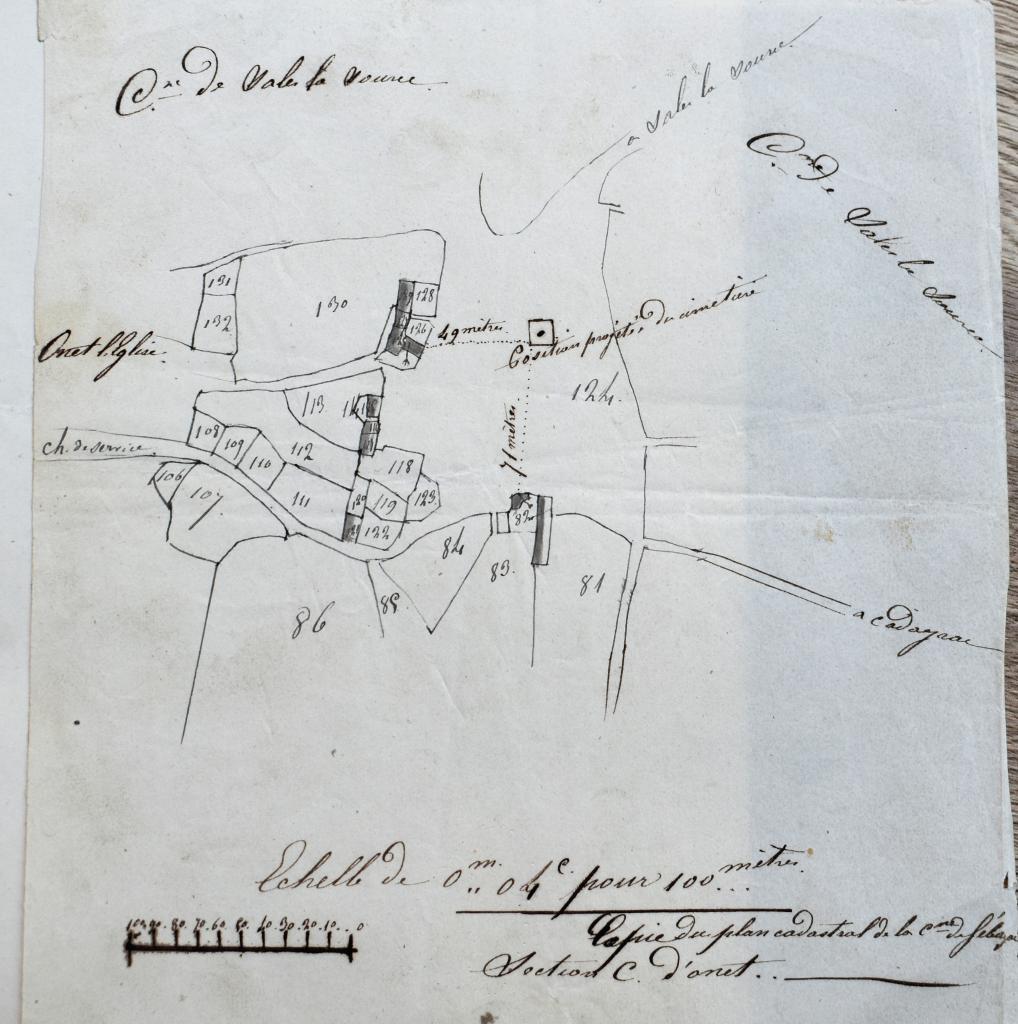 Cne de Sales la Source
a Sales la Source
Cne de Sales la Source
131
132
130
128
126
49 mètres.
Position projetée du cimetière
Onet l'Eglise.
124.
71 mètres
113
108
109
110
112
111
118
119
120
122
123
ch. de service
106
107.
82
84
83.
81
85
86
a Cadayrac
Echelle de 0m,, 04c pour 100 mètres
100 90. 80. 70. 60. 50. 40. 30. 20. 10.. 0
Copie du plan cadastral de la Cne de Sébazac
Section C. d'onet..